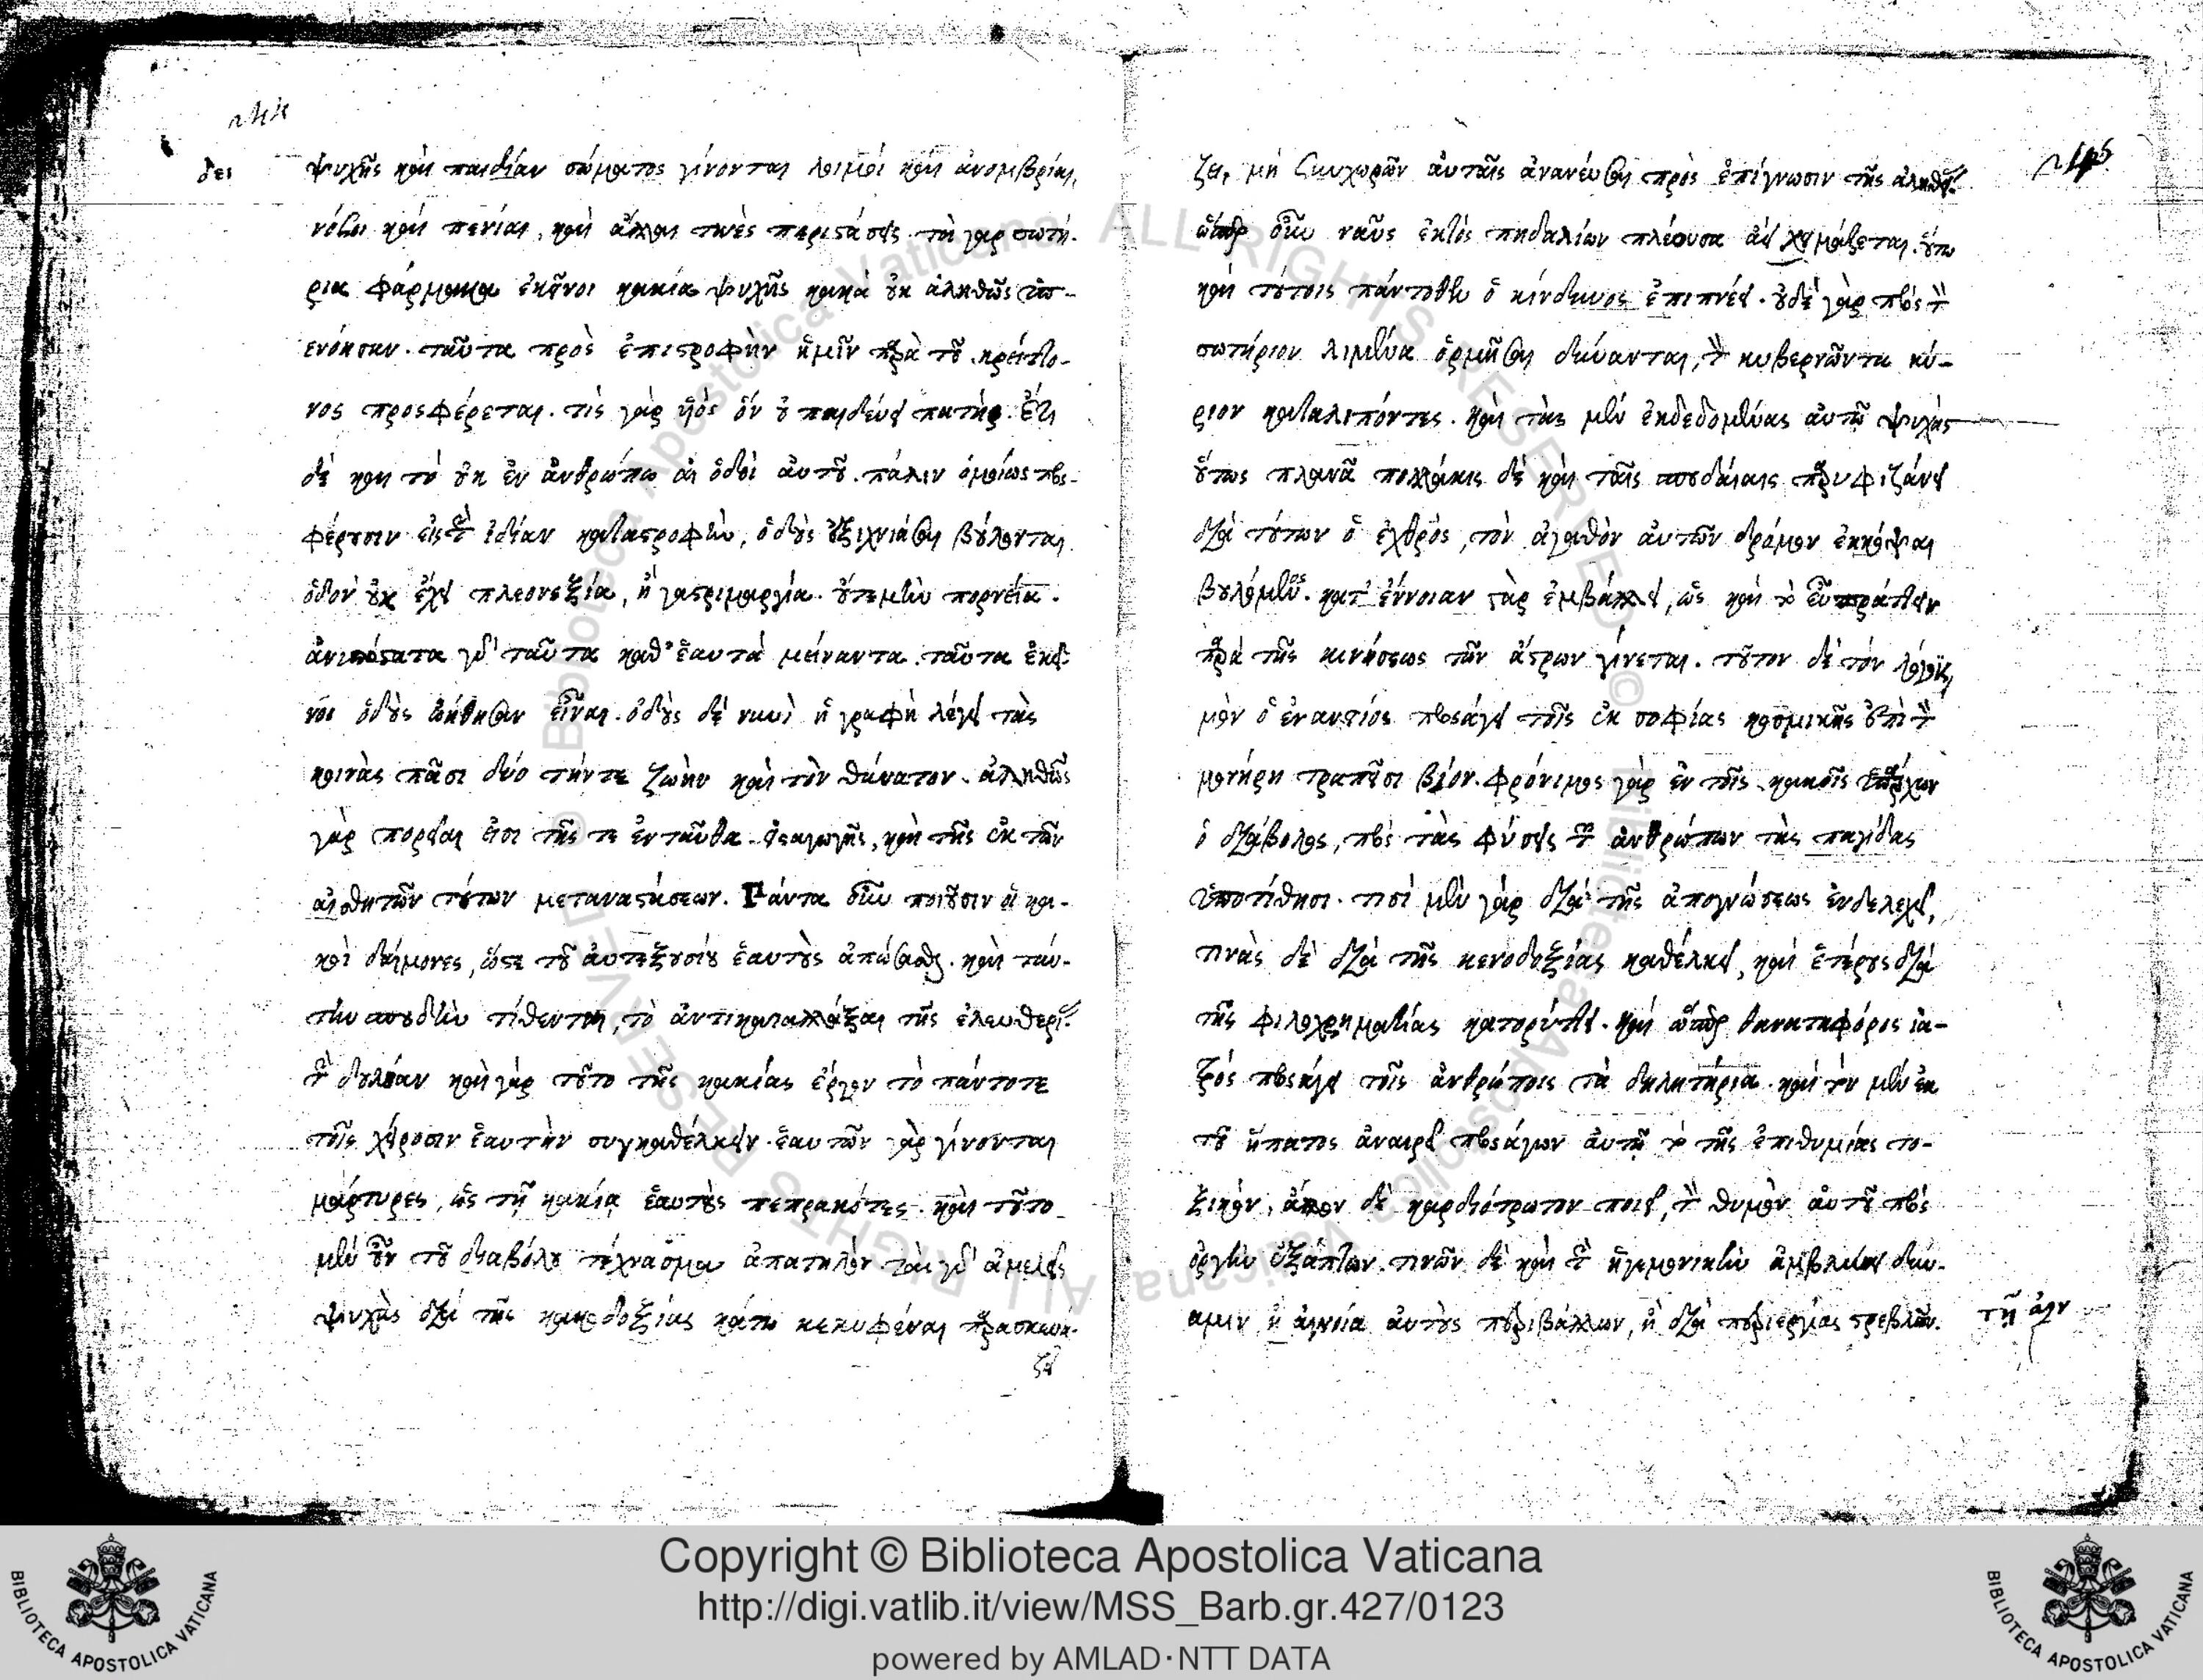 δει
ψυχῆς καὶ παιδίαν σώματος γίνονται λοιμοὶ καὶ ἀνομβρίαι,
νόσοι καὶ πενίαι, καὶ ἄλλαι τινὲς περιστάσεις. τὰ γὰρ σωτή-
ρια φάρμακα ἐκεῖνοι κακία ψυχῆς κακὰ οὐκ ἀληθῶς ὑπ-
ενόησαν. ταῦτα πρὸς ἐπιστροφὴν ἡμῖν παρὰ τοῦ κρείττο-
νος προσφέρεται. τίς γὰρ υἱὸς ὃν οὐ παιδεύει πατήρ. ἔτι
δὲ καὶ τὸ οὐκ ἐν ἀνθρώπω αἱ ὁδοὶ αὐτοῦ. πάλιν ὁμοίως προσ-
φέρουσιν εἰς τὴν ἰδίαν καταστροφὴν, ὁδοὺς ἐξιχνιάσαι βούλονται
ὁδὸν οὐκ ἔχει πλεονεξία, ἢ γαστριμαργία. οὔτε μὴν πορνεία.
ἀνυπόστατα γὰρ ταῦτα καθ' ἑαυτὰ μείναντα. ταῦτα ἐκεῖ-
νοι ὁδοὺς ᾠήθησαν εἶναι. ὁδοὺς δὲ νυνὶ ἡ γραφὴ λέγει τὰς
κοινὰς πᾶσι δύο τήν τε ζωὴν καὶ τὸν θάνατον. ἀληθῶς
γὰρ πορεῖαι εἰσι τῆς τε ἐνταῦθα εἰσαγωγῆς, καὶ τῆς ἐκ τῶν
αἰσθητῶν τούτων μεταναστάσεων. Πάντα οὖν ποιοῦσιν οἱ κα-
κοὶ δαίμονες, ὥστε τοῦ αὐτεξουσίου ἑαυτοὺς ἀπώσασθαι. καὶ ταύ-
την σπουδὴν τίθενται, τὸ ἀντικαταλλάξαι τῆς ἐλευθερίας
τὴν δουλείαν καὶ γὰρ τοῦτο τῆς κακίας ἔργον τὸ πάντοτε
τοῖς χείροσιν ἑαυτὴν συγκαθέλκειν. ἑαυτῶν γὰρ γίνονται
μάρτυρες, ὡς τῇ κακίᾳ ἑαυτοὺς πεπρακότες. καὶ τοῦτο
μὲν οὖν τοῦ διαβόλου τέχνασμα ἀπατηλὸν τὰς γὰρ ἀμελεῖς
ψυχὰς διὰ τῆς κακοδοξίας κάτω κεκυφέναι παρασκευά-
ζει
ζει, μὴ συγχωρῶν αὐταῖς ἀνανεύσαι πρὸς ἐπίγνωσιν τῆς ἀληθείας
ὥσπερ οὖν ναῦς ἐκτὸς πηδαλίων πλέουσα ἀεὶ χειμάζεται. οὕτω
καὶ τούτοις πάντοθεν ὁ κίνδυνος ἐπιπνέει. οὐδὲ γὰρ πρὸς τὸν
σωτήριον λιμένα ὁρμῆσαι δύνανται, τὸν κυβερνῶντα κύ-
ριον καταλιπόντες. καὶ τὰς μὲν ἐκδεδομένας αὐτῷ ψυχὰς
οὕτως πλανᾷ πολλάκις δὲ καὶ ταῖς σπουδαίαις παρυφιζάνει
διὰ τούτων ὁ ἐχθρὸς, τὸν ἀγαθὸν αὐτῶν δρόμον ἐκκόψαι
βουλόμενος. κατ' ἔννοιαν γὰρ ἐμβάλλει, ὡς καὶ τὸ εὖ πράττειν
παρὰ τῆς κινήσεως τῶν ἄστρων γίνεται. τοῦτον δὲ τὸν λογισ-
μὸν ὁ ἐναντίος προσάγει τοῖς ἐκ σοφίας κοσμικῆς ἐπὶ τὸν
μονήρη τραπεῖσι βίον. φρόνιμος γὰρ ἐν τοῖς κακοῖς ὑπάρχων
ὁ διάβολος, πρὸς τὰς φύσεις τῶν ἀνθρώπων τὰς παγίδας
ὑποτίθησι. τισὶ μὲν γὰρ διὰ τῆς ἀπογνώσεως ἐνδελεχεῖ,
τινὰς δὲ διὰ τῆς κενοδοξίας καθέλκει, καὶ ἑτέρους διὰ
τῆς φιλοχρηματίας κατορύττει. καὶ ὥσπερ θανατηφόρος ἰα-
τρὸς προσάγει τοῖς ἀνθρώποις τὰ δηλητήρια. καὶ τὸν μὲν ἐκ
τοῦ ἥπατος ἀναιρεῖ προσάγων αὐτῷ τὸ τῆς ἐπιθυμίας το-
ξικὸν, ἄλλον δὲ καρδιότρωτον ποιεῖ, τὸν θυμὸν αὐτοῦ πρὸς
ὀργὴν ἐξάπτων. τινῶν δὲ καὶ τὴν ἡγεμονικὴν ἀμβλύνει δύν-
αμιν ἢ ἀγνοία αὐτοὺς περιβάλλων, ἢ διὰ περιεργίας στρεβλῶν.